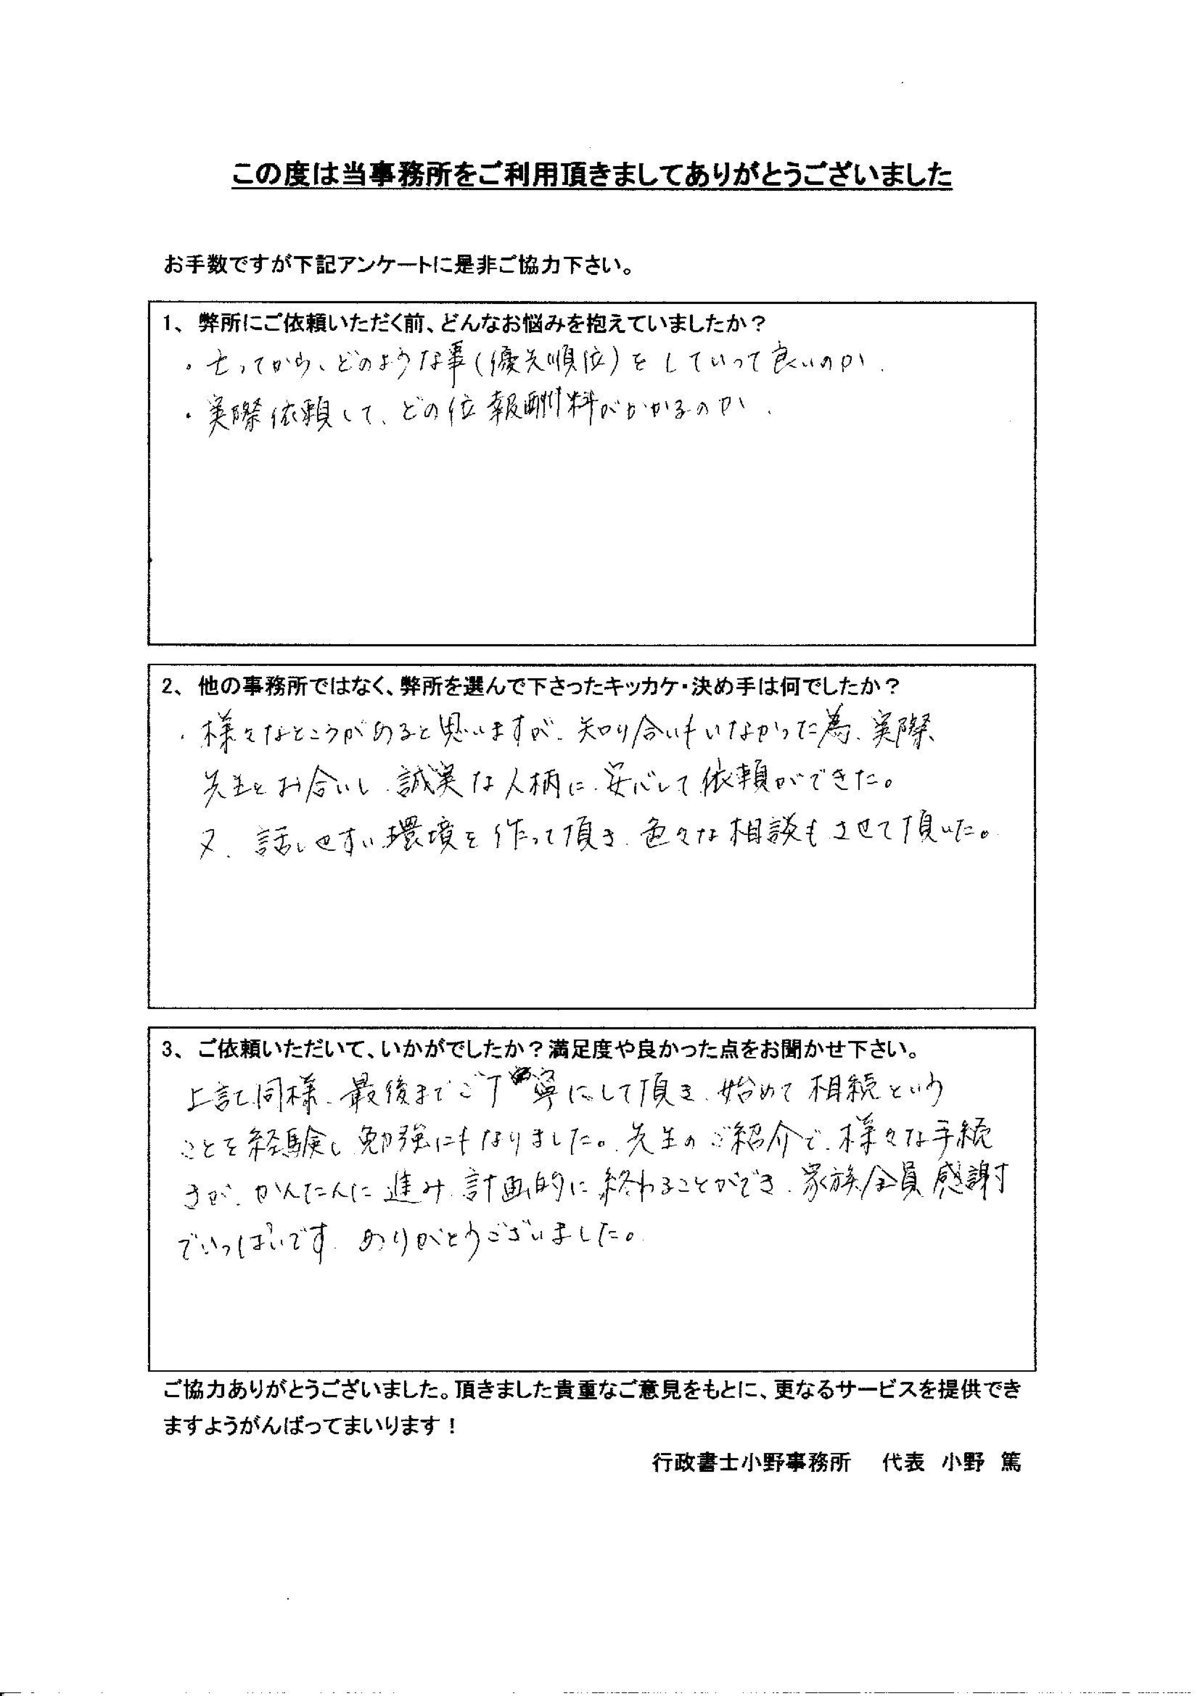 この度は当事務所をご利用頂きましてありがとうございました
お手数ですが下記アンケートに是非ご協力下さい。
1、弊所にご依頼いただく前、どんなお悩みを抱えていましたか？
・亡ってから、どのような事(優先順位)をしていって良いのか、
・実際依頼して、どの位報酬料がかかるのか、
2、他の事務所ではなく、弊所を選んで下さったキッカケ・決め手は何でしたか？
・様々なところがあると思いますが、知り合いもいなかった為、実際、
先生とお合いし、誠実な人柄に、安心して依頼ができた。
又、話しやすい環境を作って頂き、色々な相談もさせて頂いた。
3、ご依頼いただいて、いかがでしたか？満足度や良かった点をお聞かせ下さい。
上記同様、最後までご丁寧にして頂き、始めて相続という
ことを経験し勉強にもなりました。先生のご紹介で、様々な手続
きが、かんたんに進み、計画的に終わることができ、家族全員感謝
でいっぱいです。ありがとうございました。
ご協力ありがとうございました。頂きました貴重なご意見をもとに、更なるサービスを提供でき
ますようがんばってまいります！
行政書士小野事務所　代表　小野　篤